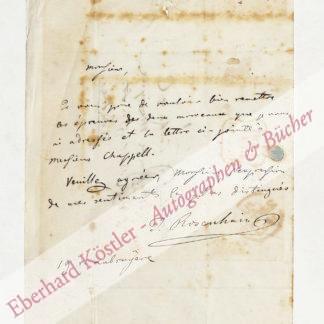 Monsieur,
Je vous prie de vouloir bien remettre
les épreuves des deux morceaux que je vous
ai adressés et la lettre ci-jointe à
Messieurs Chappell.
Veuillez agréer, Monsieur, l'expression
de mes sentiments les plus distingués
J. Rosenhain
19 r. Labruyère
Eberhard Köstler - Autographen & Bücher